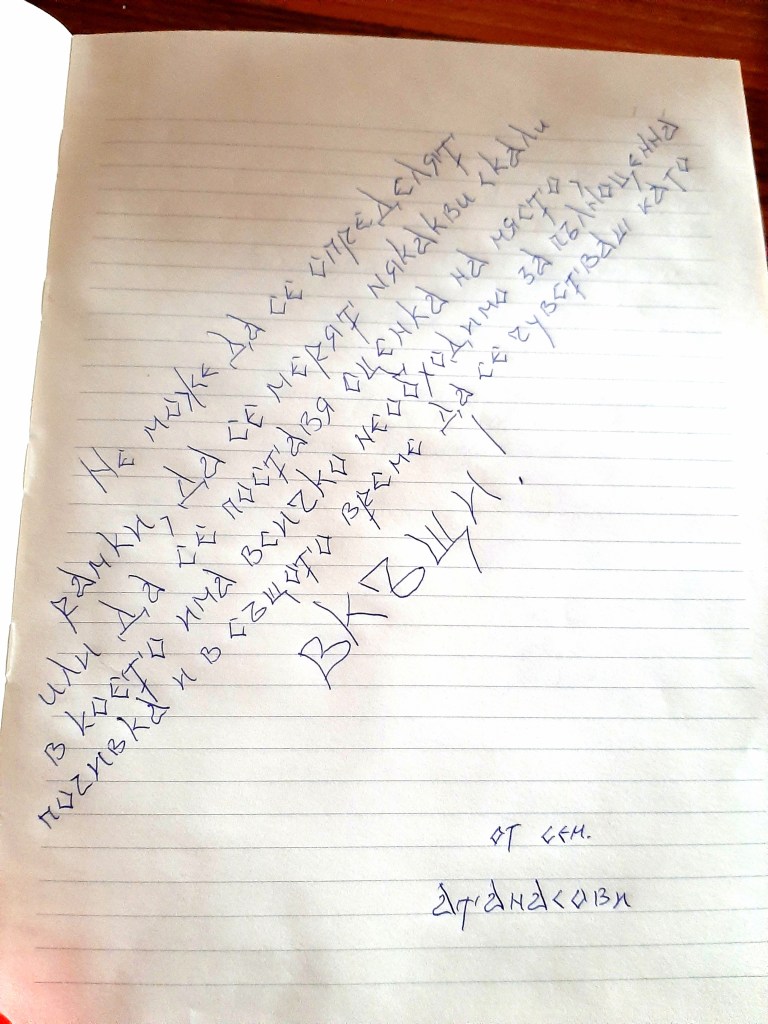 Не може да се определят
рамки, да се мерят някакви скали
или да се поставя оценка на място,
в което има всичко необходимо за пълноценна
почивка и в същото време да се чувстваш като
ВКЪЩИ!
от сем.
Атанасови